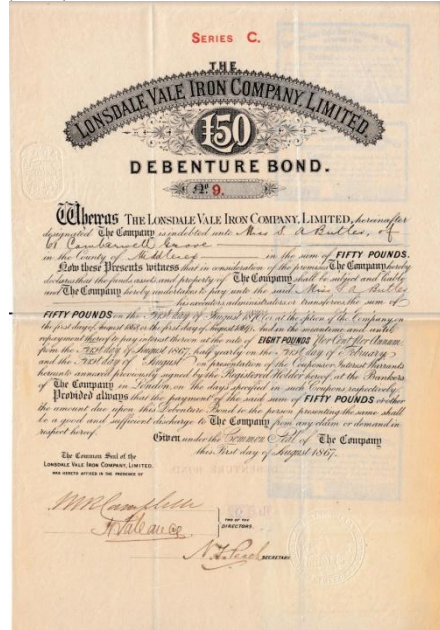 SERIES C.
THE
LONSDALE VALE IRON COMPANY, LIMITED.
£50
DEBENTURE BOND.
No 9.
Whereas THE LONSDALE VALE IRON COMPANY, LIMITED, hereinafter
designated The Company is indebted unto Miss S. A Butler, of
Camberwell Grove
in the County of Middlesex in the sum of FIFTY POUNDS.
Now these Presents witness that in consideration of the premises The Company hereby
declares that the funds assets and property of The Company shall be subject and liable
and The Company hereby undertakes to pay unto the said Miss Butler
executors administrators or transferees the sum of
FIFTY POUNDS on the First day of August or at the option of the Company on
the first day of August or the first day of August And in the meantime and until
repayment thereof to pay interest thereon at the rate of EIGHT POUNDS Per Cent Per Annum
from the First day of August 1867, half yearly on the First day of February
and the First day of August on presentation of the Coupons or Interest Warrants
hereunto annexed previously signed by the Registered Holder hereof, at the Bankers
of The Company in London, on the days specified in such Coupons respectively.
Provided always that the payment of the said sum of FIFTY POUNDS or other
the amount due upon this Debenture Bond to the person presenting the same shall
be a good and sufficient discharge to The Company from any claim or demand in
respect hereof.
Given under the Common Seal of The Company
this First day of August 1867.
The Common Seal of the
LONSDALE VALE IRON COMPANY, LIMITED,
WAS HERETO AFFIXED IN THE PRESENCE OF
TWO OF THE
DIRECTORS.
SECRETARY.